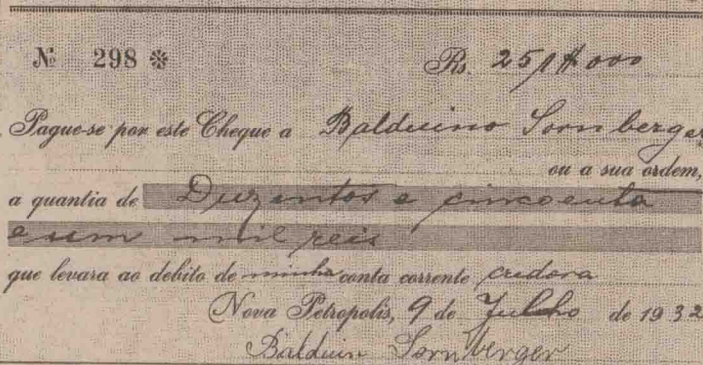 Nº 298 ※ Rs. 251$000
Pague-se por este Cheque a Balduino Sornberger
ou a sua ordem,
a quantia de Duzentos e cincoenta
e um mil reis
que levara ao debito de minha conta corrente credora
Nova Petropolis, 9 de Julho de 1932
Balduin Sornberger